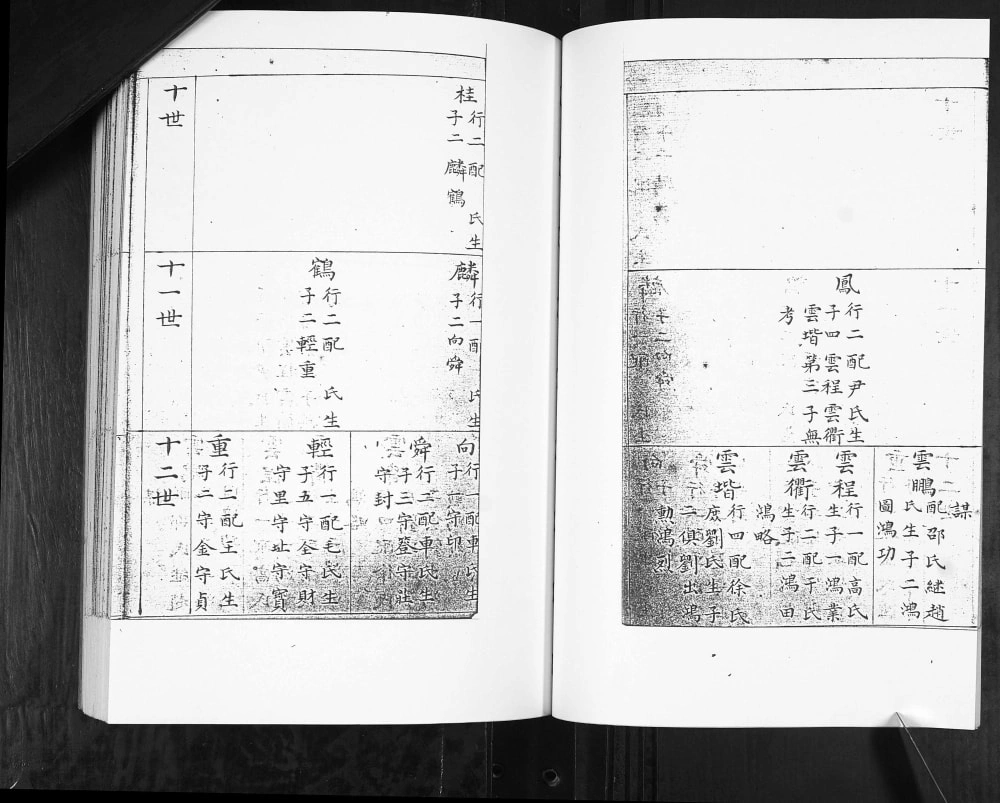 鳳
行二配尹氏生
子四雲程雲衢
雲堦第三子無
考
謀
雲鵬配邵氏繼趙
氏生子二鴻
圖鴻功
雲程行一配高氏
生子一鴻業
雲衢行二配于氏
生子二鴻田
鴻略
雲堦行四配徐氏
庶劉氏生子
二俱劉出鴻
勳鴻烈
十世
桂行二配 氏生
子二麟鶴
十一世
麟行一配 氏生
子二向舜
鶴行二配 氏生
子二輕重
十二世
向行一配 氏生
子一守印
舜行二配車氏生
子三守登守壯
守封
輕行一配毛氏生
子五守全守財
守里守址守寳
重行二配王氏生
子二守金守貞